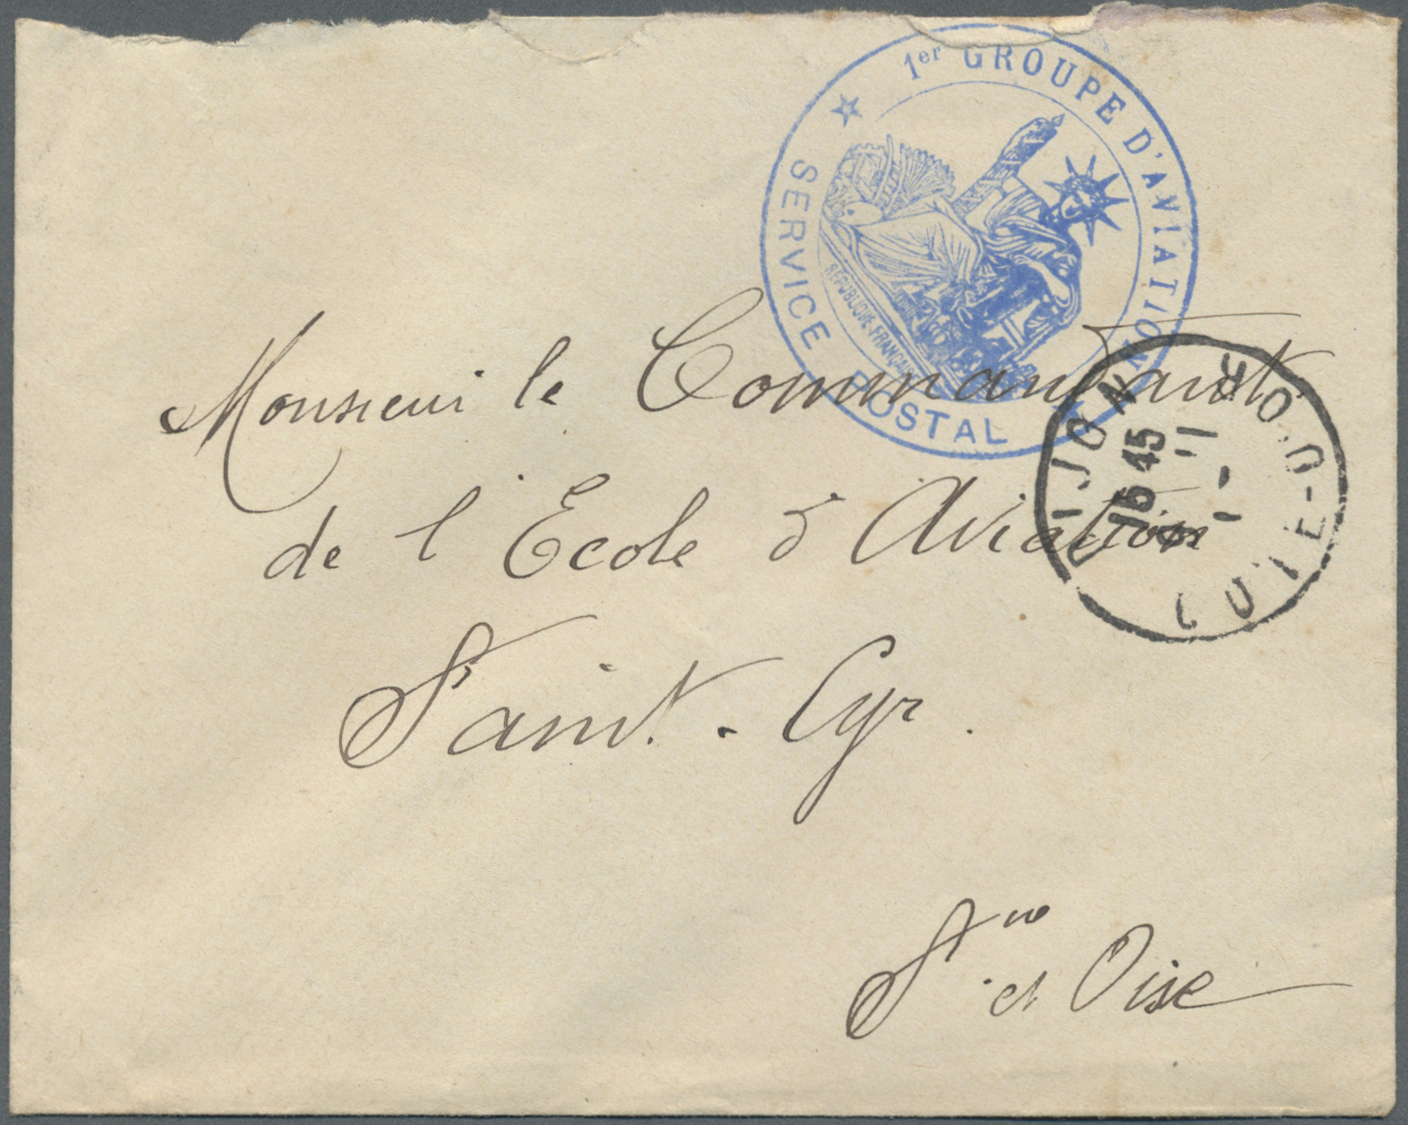 1er GROUPE D'AVIATION
SERVICE POSTAL
REPUBLIQUE FRANÇAISE
Monsieur le Commandant
de l'Ecole d'Aviation
Saint-Cyr.
Sne et Oise
DIJON
COTE-D'OR
15 45
1 - 11